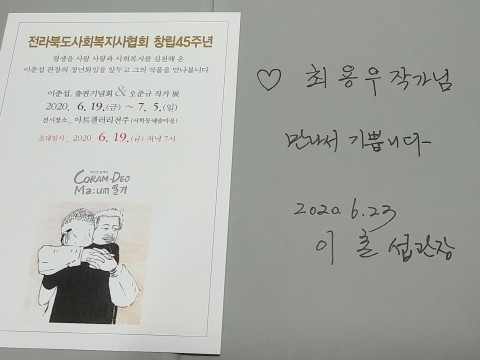 전라북도사회복지사협회 창립45주년
평생을 사람 사랑과 사회복지를 실천해 온
이춘섭 관장의 정년퇴임을 앞두고 그의 작품을 만나봅니다
이춘섭, 출판기념회 & 오준규 작가 展
2020. 6.19.(금) ~ 7. 5.(일)
전시장소_ 아트갤러리전주 (서학동예술마을)
초대일시_ 2020 6.19.(금) 저녁 7시
CORAM-DEO
Ma:um 열기
♡ 최용우 작가님
만나서 기쁩니다~
2020.6.23
이춘섭관장